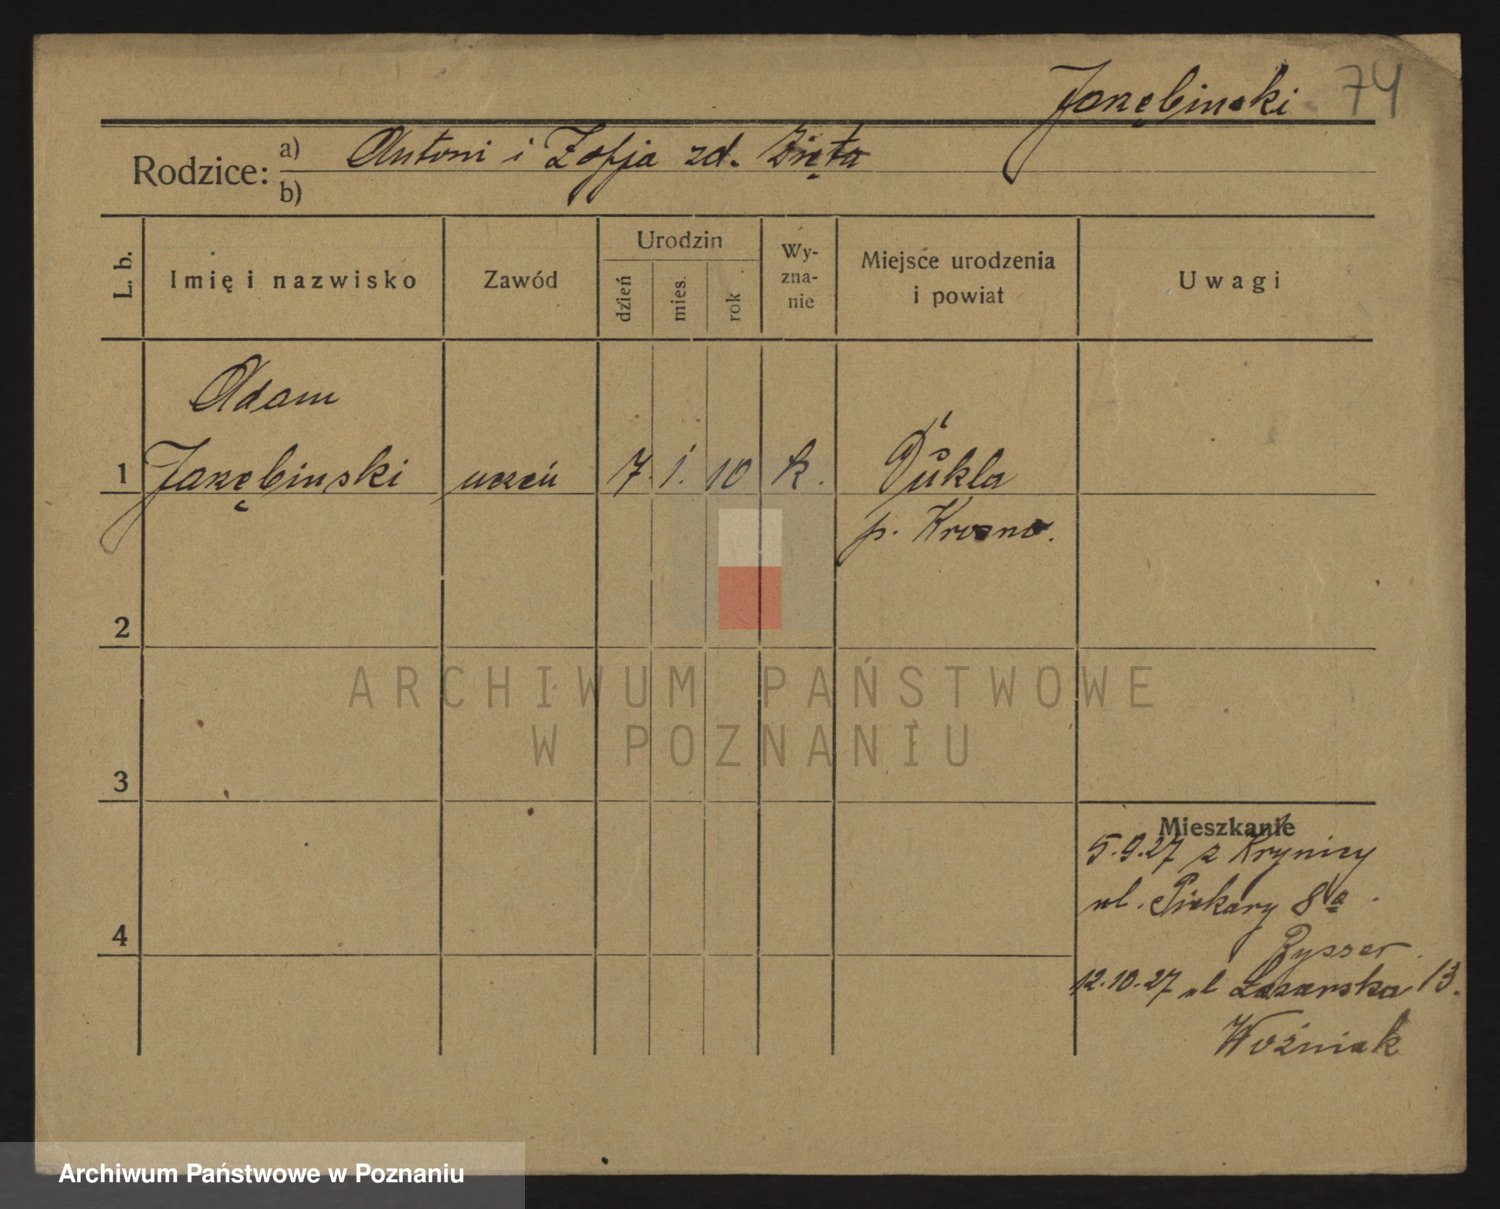 Jarzębinski 74
Rodzice: a) Antoni i Zofja zd. Zięta
b)
L. b. Imię i nazwisko Zawód Urodzin dzień mies. rok Wy-zna-nie Miejsce urodzenia i powiat Uwagi
Adam
1 Jarzębinski uczeń 7. 1. 10 k. Dukla
p. Krosno.
2
ARCHIWUM PAŃSTWOWE
W POZNANIU
3
Mieszkanie
5.9.27 z Krynicy
ul. Piekary 8a
4
Rysser
12.10.27 ul Łazarska 13.
Woźniak
Archiwum Państwowe w Poznaniu